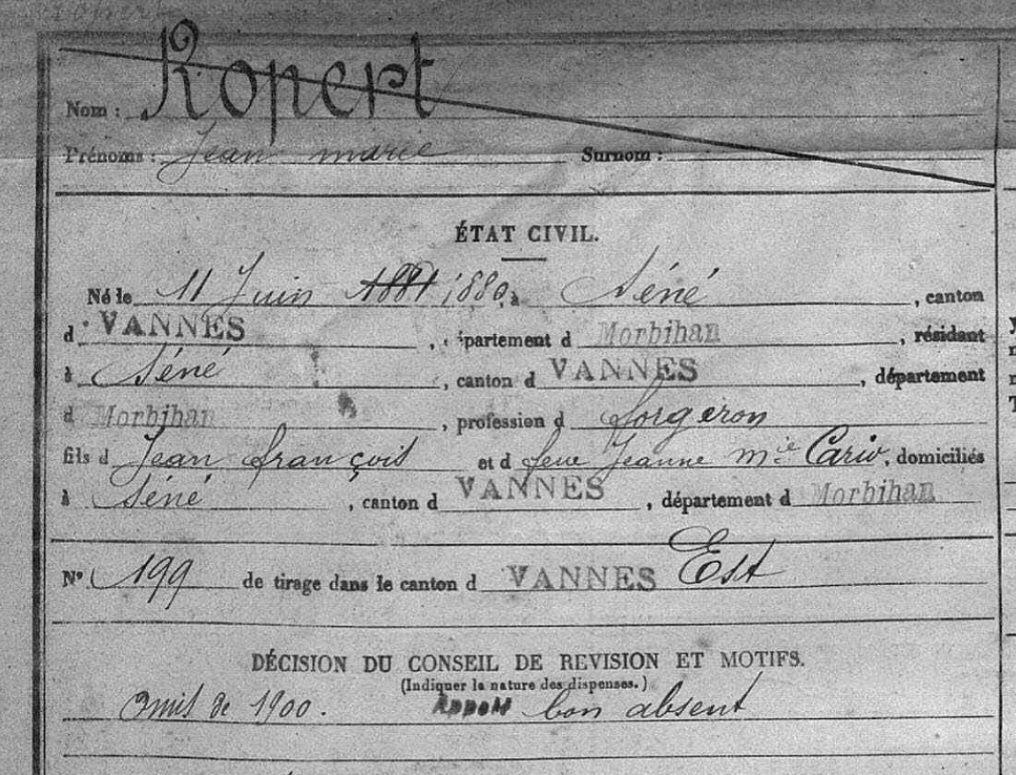 Nom : Ropert
Prénoms : Jean marie Surnom :
ÉTAT CIVIL.
Né le 11 Juin 1881 1880, à Séné, canton
d VANNES, département d Morbihan, résidant
à Séné, canton d VANNES, département
d Morbihan, profession d forgeron
fils d Jean françois et d feue Jeanne Mie Cario, domiciliés
à Séné, canton d VANNES, département d Morbihan
N° 199 de tirage dans le canton d VANNES Est
DÉCISION DU CONSEIL DE REVISION ET MOTIFS.
(Indiquer la nature des dispenses.)
Omis de 1900. bon absent